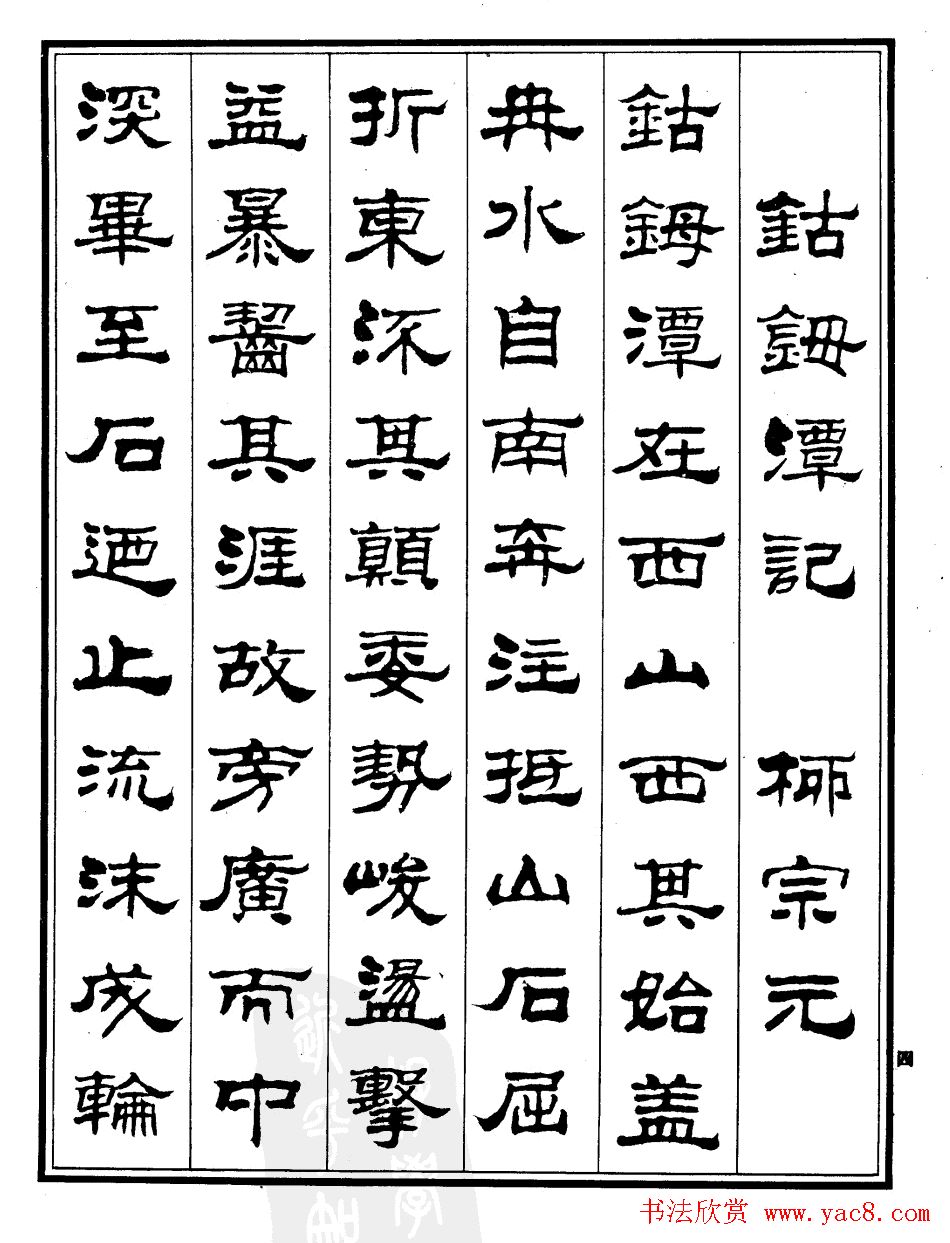 鈷鉧潭記 柳宗元
鈷鉧潭在西山西其始盖
冉水自南奔注抵山石屈
折東流其顛委勢峻盪擊
益暴齧其涯故旁廣而中
深畢至石迺止流沫成輪
四
书法欣赏 www.yac8.com